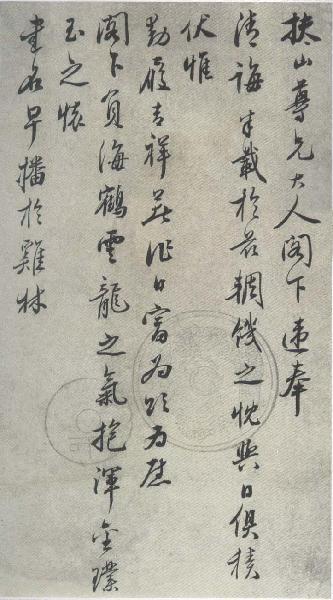 扶山尊兄大人閣下違奉
清誨半載於茲輖饑之忱與日俱積
伏惟
勛履吉祥著作日富為頌為慰
閣下負海鶴雲龍之氣抱渾金璞
玉之懷
書名早播於雞林